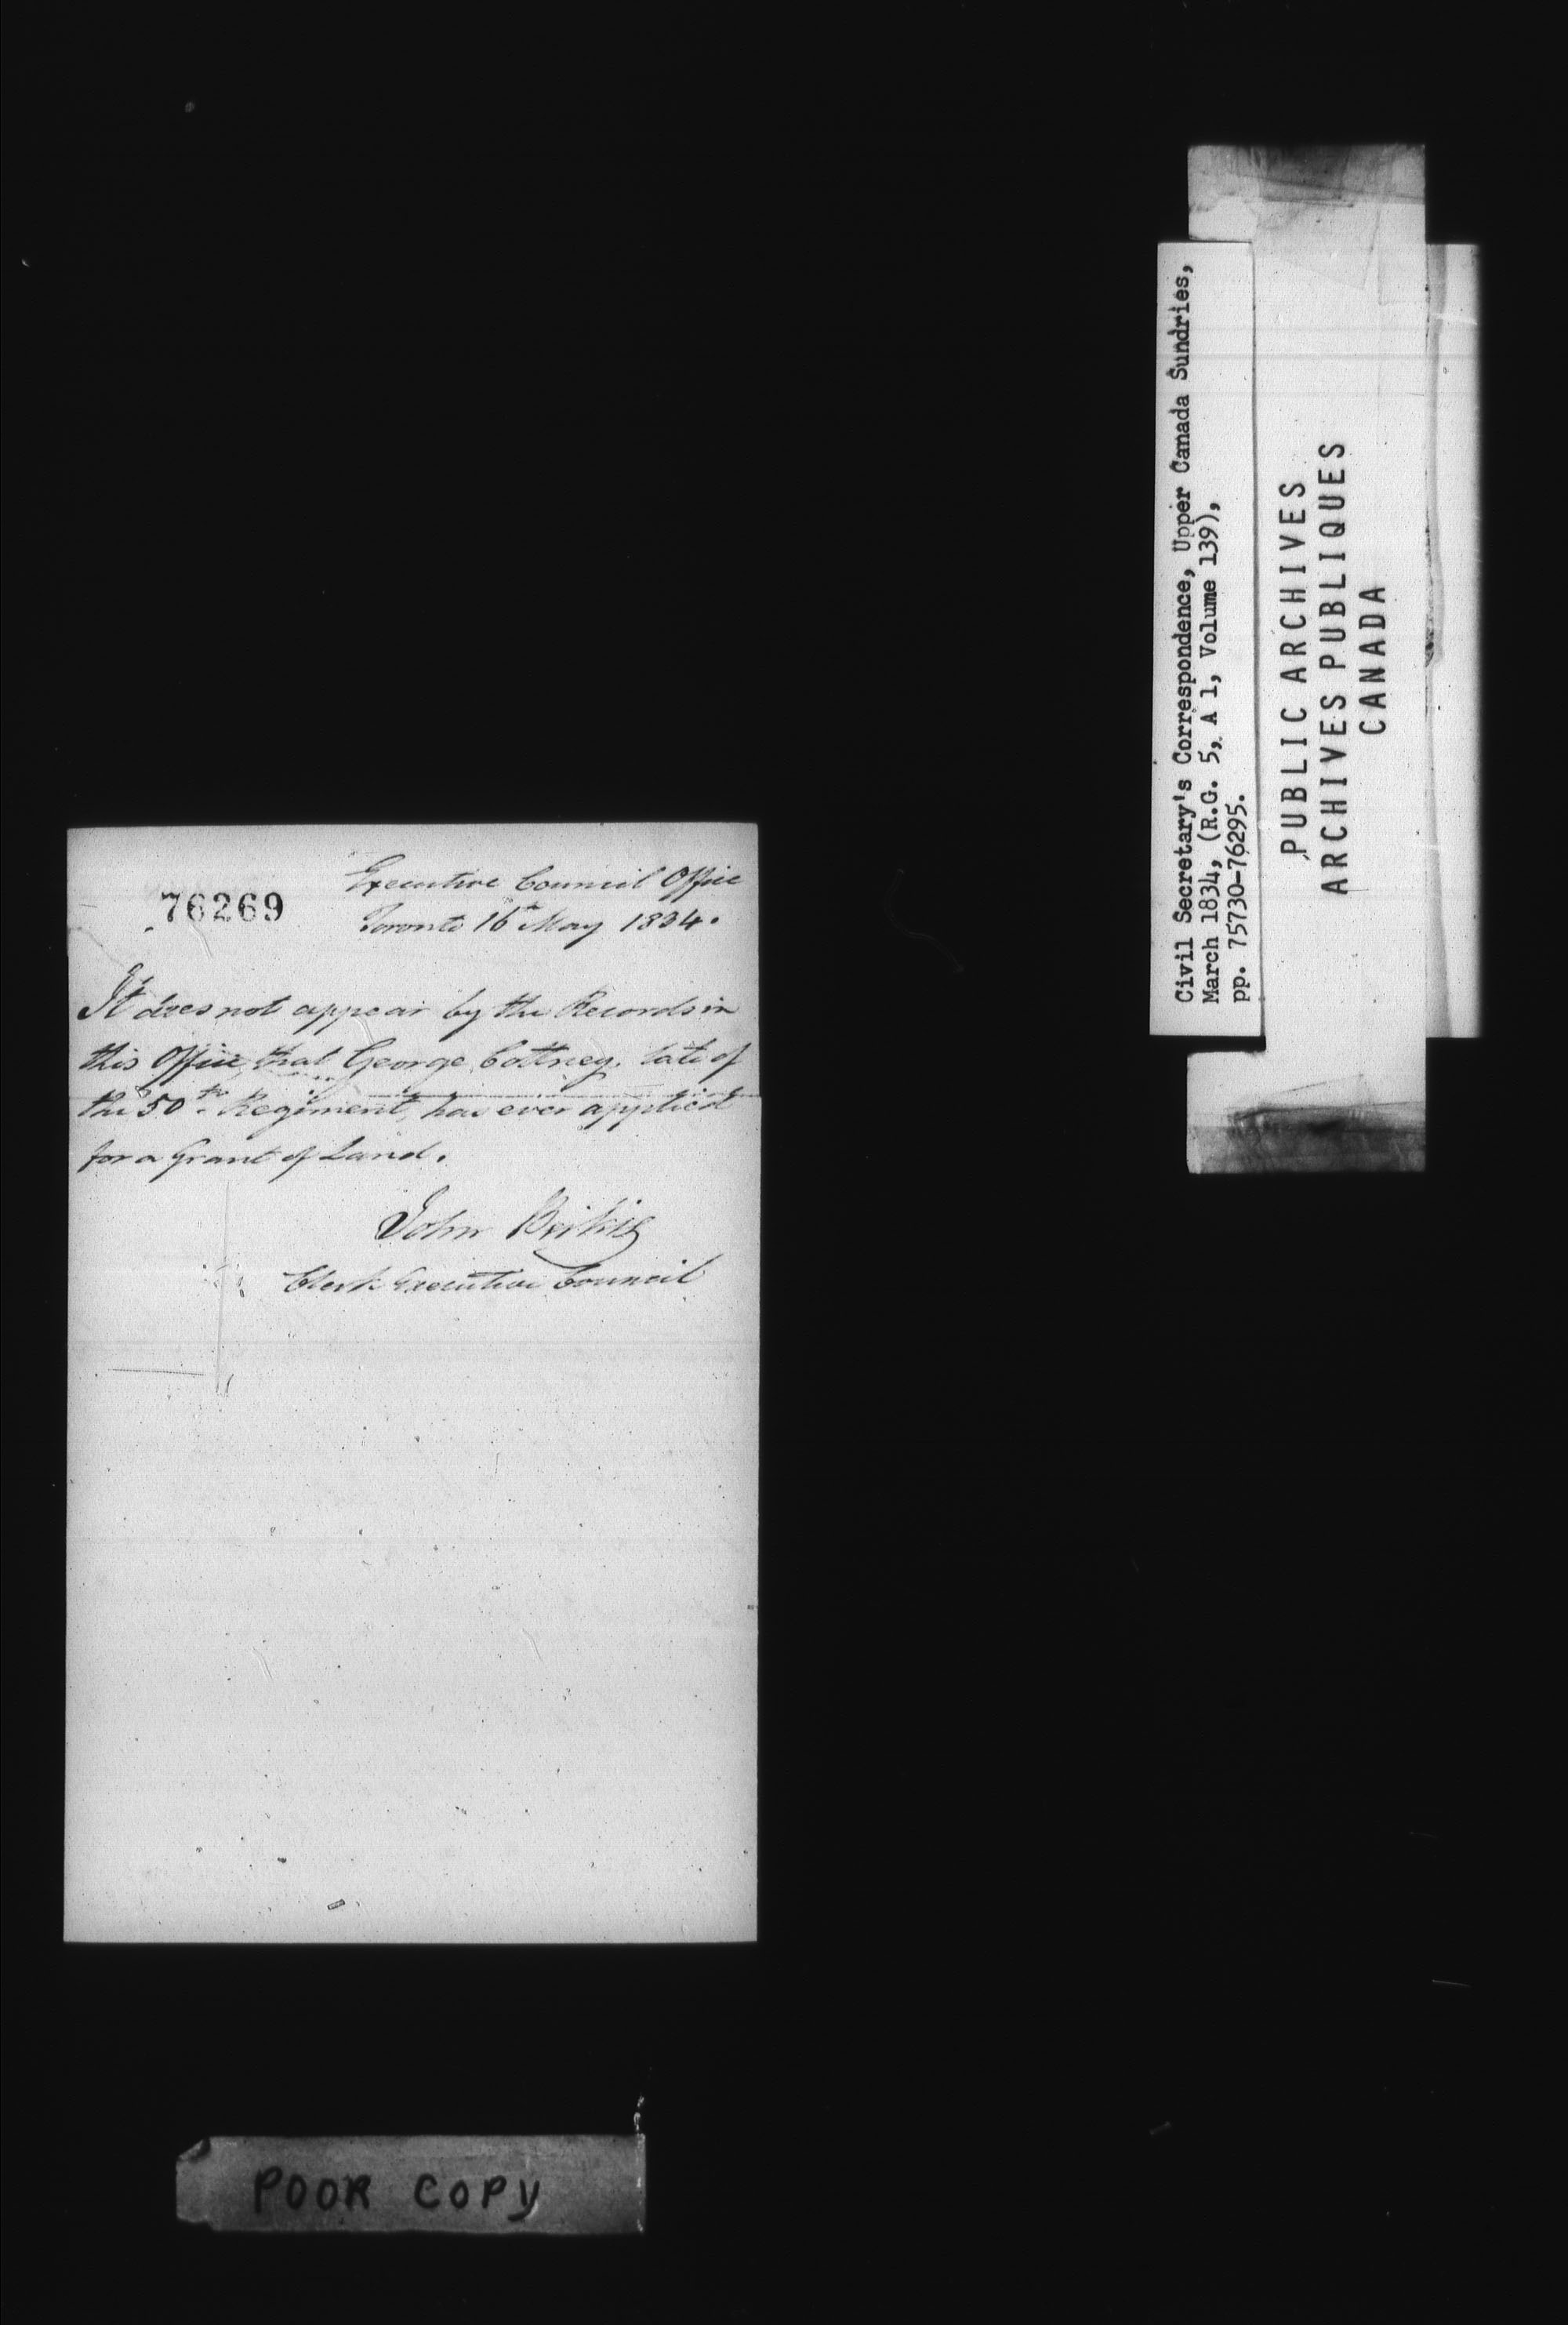 76269
Executive Council Office
Toronto 16th May 1834.
It does not appear by the Records in
this Office, that George Cottney, late of
the 50th Regiment, has ever applied
for a Grant of Land.
John Beikie
Clerk Executive Council
Civil Secretary's Correspondence, Upper Canada Sundries,
March 1834, (R.G. 5, A 1, Volume 139),
pp. 75730-76295.
PUBLIC ARCHIVES
ARCHIVES PUBLIQUES
CANADA
POOR COPY